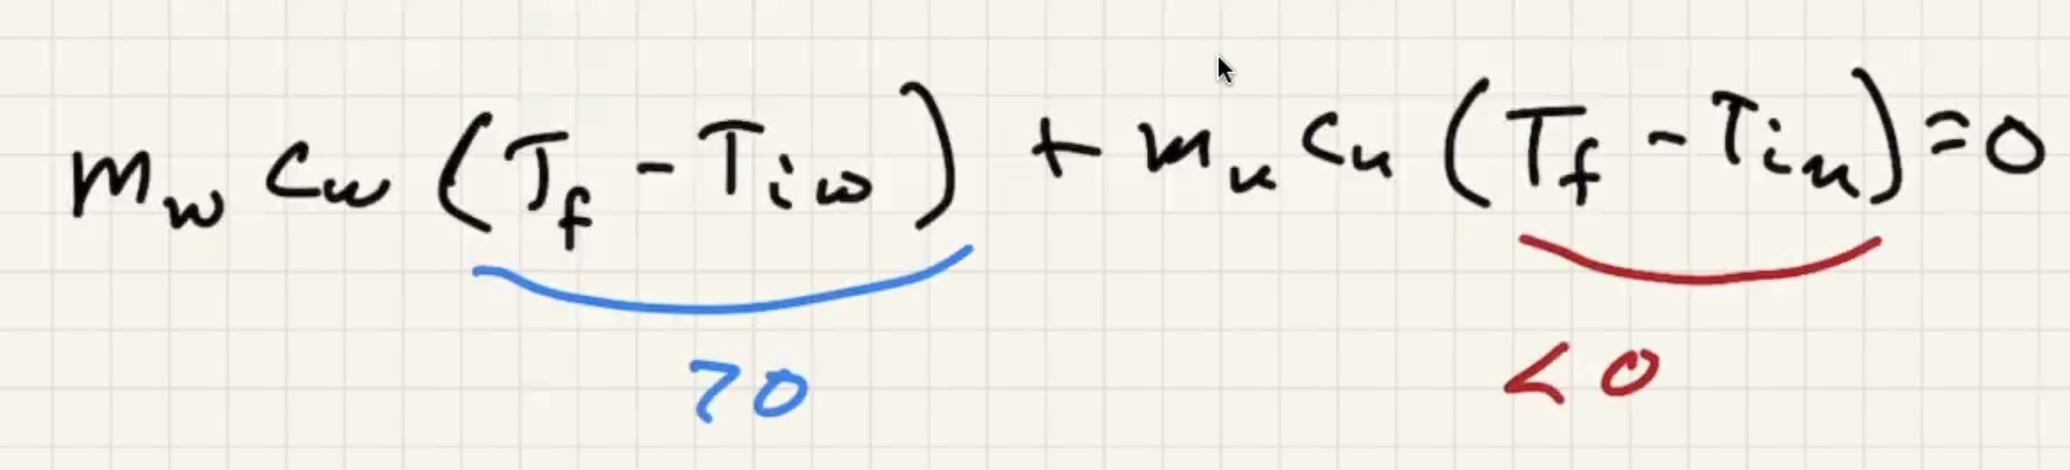 m_w c_w (T_f - T_iw) + m_x c_x (T_f - T_ix) = 0
>0 <0